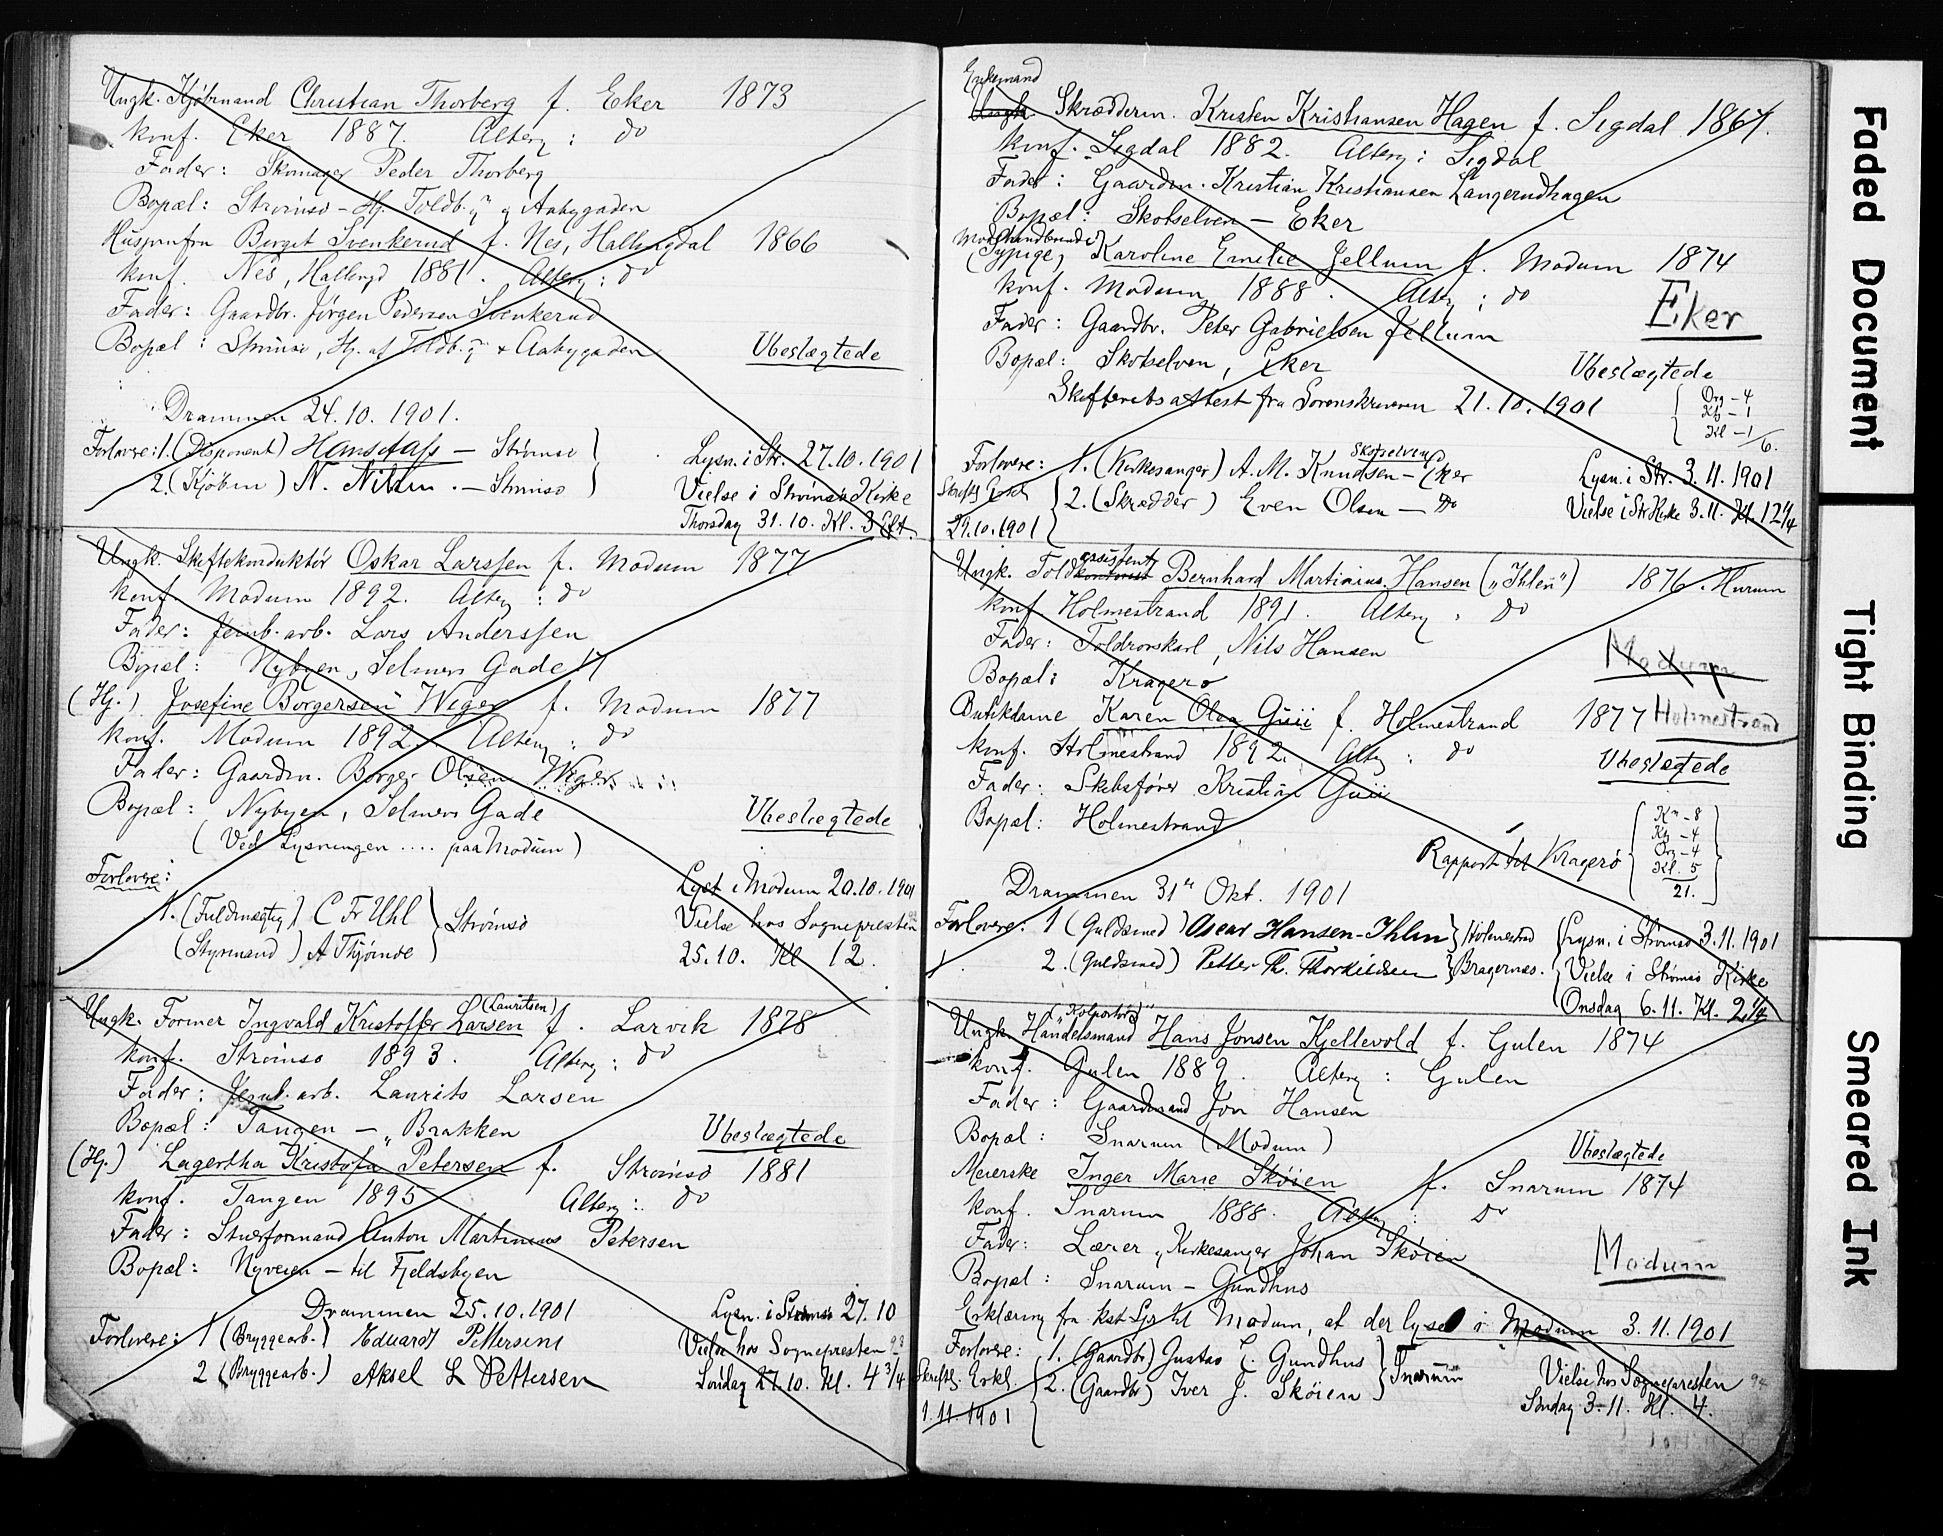 Ungk. Kjøbmand Christian Thorberg f. Eker 1873
konf. Eker 1887. Alterg : do
Fader: Skomager Peder Thorberg
Bopæl: Strømsø - Hj. Toldb.g. og Aabygaden
Husjomfru Berget Svenkerud f. Nes, Hallingdal 1866
konf. Nes, Hallingd 1881. Alterg : do
Fader: Gaardbr. Jørgen Pedersen Svenkerud
Bopæl : Strømsø, Hj. af Toldb.g. & Aabygaden Ubeslægtede
Drammen 24.10.1901.
Forlovere: 1. (Disponent) - Strømsø } Lysn. i Str. 27.10.1901
2. (Kjøbm) N. Nilsen. - Strømsø } Vielse i Strømsø Kirke
Thorsdag 31.10. Kl. 3 Eft
Ungk. Skiftekonduktør Oskar Larssen f. Modum 1877
konf. Modum 1892. Alterg : do
Fader: Jernb. arb. Lars Anderssen
Bopæl: Nybyen, Selmers Gade 17
(Hj.) Josefine Borgersen Weger f. Modum 1877
konf. Modum 1892. Alterg : do
Fader: Gaardm. Borger Olsen Weger
Bopæl: Nybyen, Selmers Gade Ubeslægtede
(Ved Lysningen .... paa Modum)
Forlovere:
Lyst i Modum 20.10.1901
1. (Fuldmægtig) C Fr Uhl } Strømsø Vielse hos Sognepresten 92
(Styrmand) A Thjømøe } 25.10. Kl 12.
(Lauritsen)
Ungk. Former Ingvald Kristoffer Larsen f. Larvik 1878
konf. Strømsø 1893. Alterg : do
Fader: Jernb. arb. Laurits Larsen
Bopæl: Tangen - "Brakken Ubeslægtede
(Hj.) Lagertha Kristofa Petersen f. Strømsø 1881
konf. Tangen 1895 Alterg : do
Fader: Stuerformand Anton Martinius Petersen
Bopæl: Nyveien - til Fjeldsbyen
Drammen 25.10.1901 Lysn. i Strømsø 27.10
Forlovere: 1 (Bryggearb.) Eduard Pettersens Vielse hos Sognepresten 93
2 (Bryggearb.) Aksel L Pettersen Søndag 27.10. Kl. 4 3/4
Enkemand
Ungk Skrædderm. Kristen Kristiansen Hagen f. Sigdal 1867.
konf. Sigdal 1882. Alterg : Sigdal
Fader : Gaardm. Kristian Kristiansen Langerudhagen
Bopæl: Skotselven - Eker
Modehandlende
(Sypige) Karoline Emilie Jellum f. Modum 1874
konf. Modum 1888. Alterg : do
Eker
Fader : Gaardbr. Peter Gabrielsen Jellum
Bopæl: Skotselven, Eker Ubeslægtede
Skifteretsattest fra Sorenskriveren 21.10.1901 { Org - 4
Kg - 1
Kl - 1
6.
Skotselven
Forlovere: 1. (Kirkesanger) A. M. Knudsen - Eker Lysn. i Str. 3.11.1901
2. (Skrædder) Even Olsen - do Vielse i Str Kirke 3.11. Kl. 12 1/4
29.10.1901
assistent
Ungk. Toldkontorist Bernhard Martinius Hansen ("Ihlen") 1876. Hurum
konf Holmestrand 1891. Alterg : do
Fader: Toldrorskarl, Nils Hansen
Modum
Bopæl: Kragerø
Butikdame Karen Olea Guii f. Holmestrand 1877 Holmestrand
konf. Holmestrand 1892. Alterg : do
Ubeslægtede
Fader: Skibsfører Kristian Guii
Bopæl: Holmestrand
Rapport til Kragerø { Kr - 8
Kg - 4
Org - 4
Kl. 5
21. }
Drammen 31te Okt. 1901
Forlovere: 1 (Guldsmed) Oscar Hansen-Ihlen } Holmestrd { Lysn. i Strømsø 3.11.1901
2. (Guldsmed) Petter Th. Thorkildsen } Bragernæs. Vielse i Strømsø Kirke
Onsdag 6.11. Kl. 2 1/4
("Kolportør")
Ungk. Handelsmand Hans Jonsen Kjellevold f. Gulen 1874
konf. Gulen 1889. Alterg : Gulen
Fader : Gaardmand Jon Hansen
Bopæl : Snarum (Modum) Ubeslægtede
Meierske Inger Marie Skøien f. Snarum 1874
konf. Snarum 1888. Alterg : do
Fader: Lærer, Kirkesanger Johan Skøien Modum
Bopæl : Snarum - Gundhus
Erklæring fra kst Spr til Modum, at der lyses i Modum 3.11.1901
Forlovere: 1. (Gaardbr) Gustav E. Gundhus } Snarum Vielse hos Sognepresten 94
Skriftl. Erkl { 2. (Gaardbr) Iver J. Skøien } Søndag 3.11. Kl. 4.
1.11.1901
Faded Document
Tight Binding
Smeared Ink